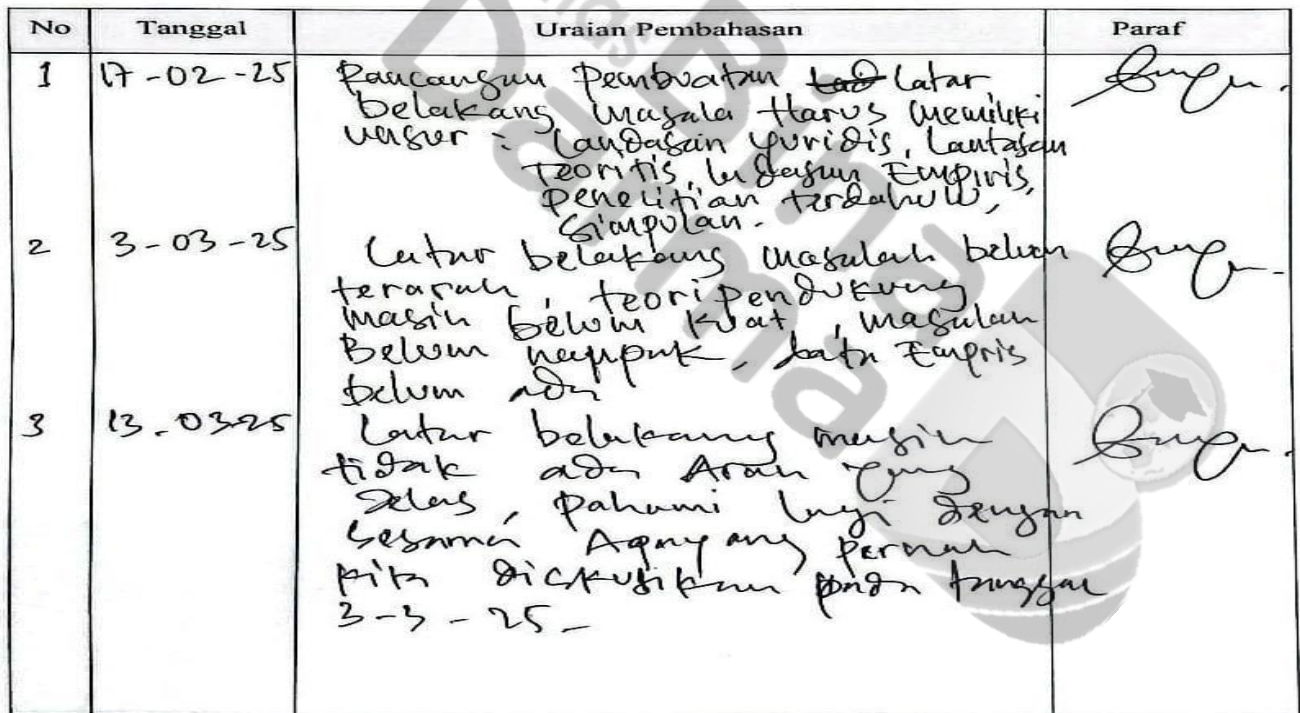 No Tanggal Uraian Pembahasan Paraf
1 17-02-25 Rancangan Pembuatan latar
belakang masala Harus memiliki
unsur : Landasan yuridis, Lantasan
teoritis, landasan Empiris,
penelitian terdahulu,
simpulan.
2 3-03-25 Latar belakang masalah belum
terarah, teori pendukung
masih belum kuat, masalah
Belum nampak, data Empris
belum ada
3 13.03-25 Latar belakang masih
tidak ada Arah yang
Jelas, pahami lagi dengan
pernah
kita diskusikan pada tanggal
3-3-25-
Bina
Darma